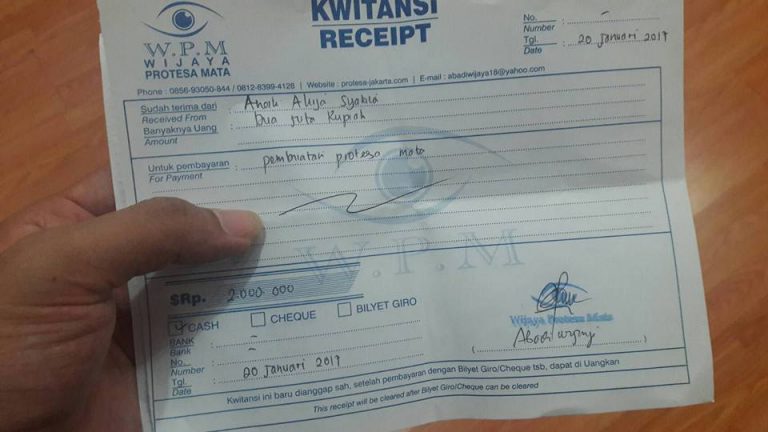 KWITANSI
RECEIPT
W.P.M
WIJAYA
PROTESA MATA
No. : -
Number
Tgl. : 20 Januari 2017
Date
Phone : 0856-93050-844 / 0812-8399-4128 | Website : protesa-jakarta.com | E-mail : abadiwijaya18@yahoo.com
Sudah terima dari : Anak Aluja Syakia
Received From
Banyaknya Uang : Dua Juta Rupiah
Amount
Untuk pembayaran : pembuatan protesa mata
For Payment
W.P.M
$Rp. 2.000.000
CASH CHEQUE BILYET GIRO
BANK : -
Bank
No. : -
Number
Tgl. : 20 Januari 2017
Date
Wijaya Protesa Mata
Kwitansi ini baru dianggap sah, setelah pembayaran dengan Bilyet Giro/Cheque tsb, dapat di Uangkan
This receipt will be cleared after Bilyet Giro/Cheque can be cleared